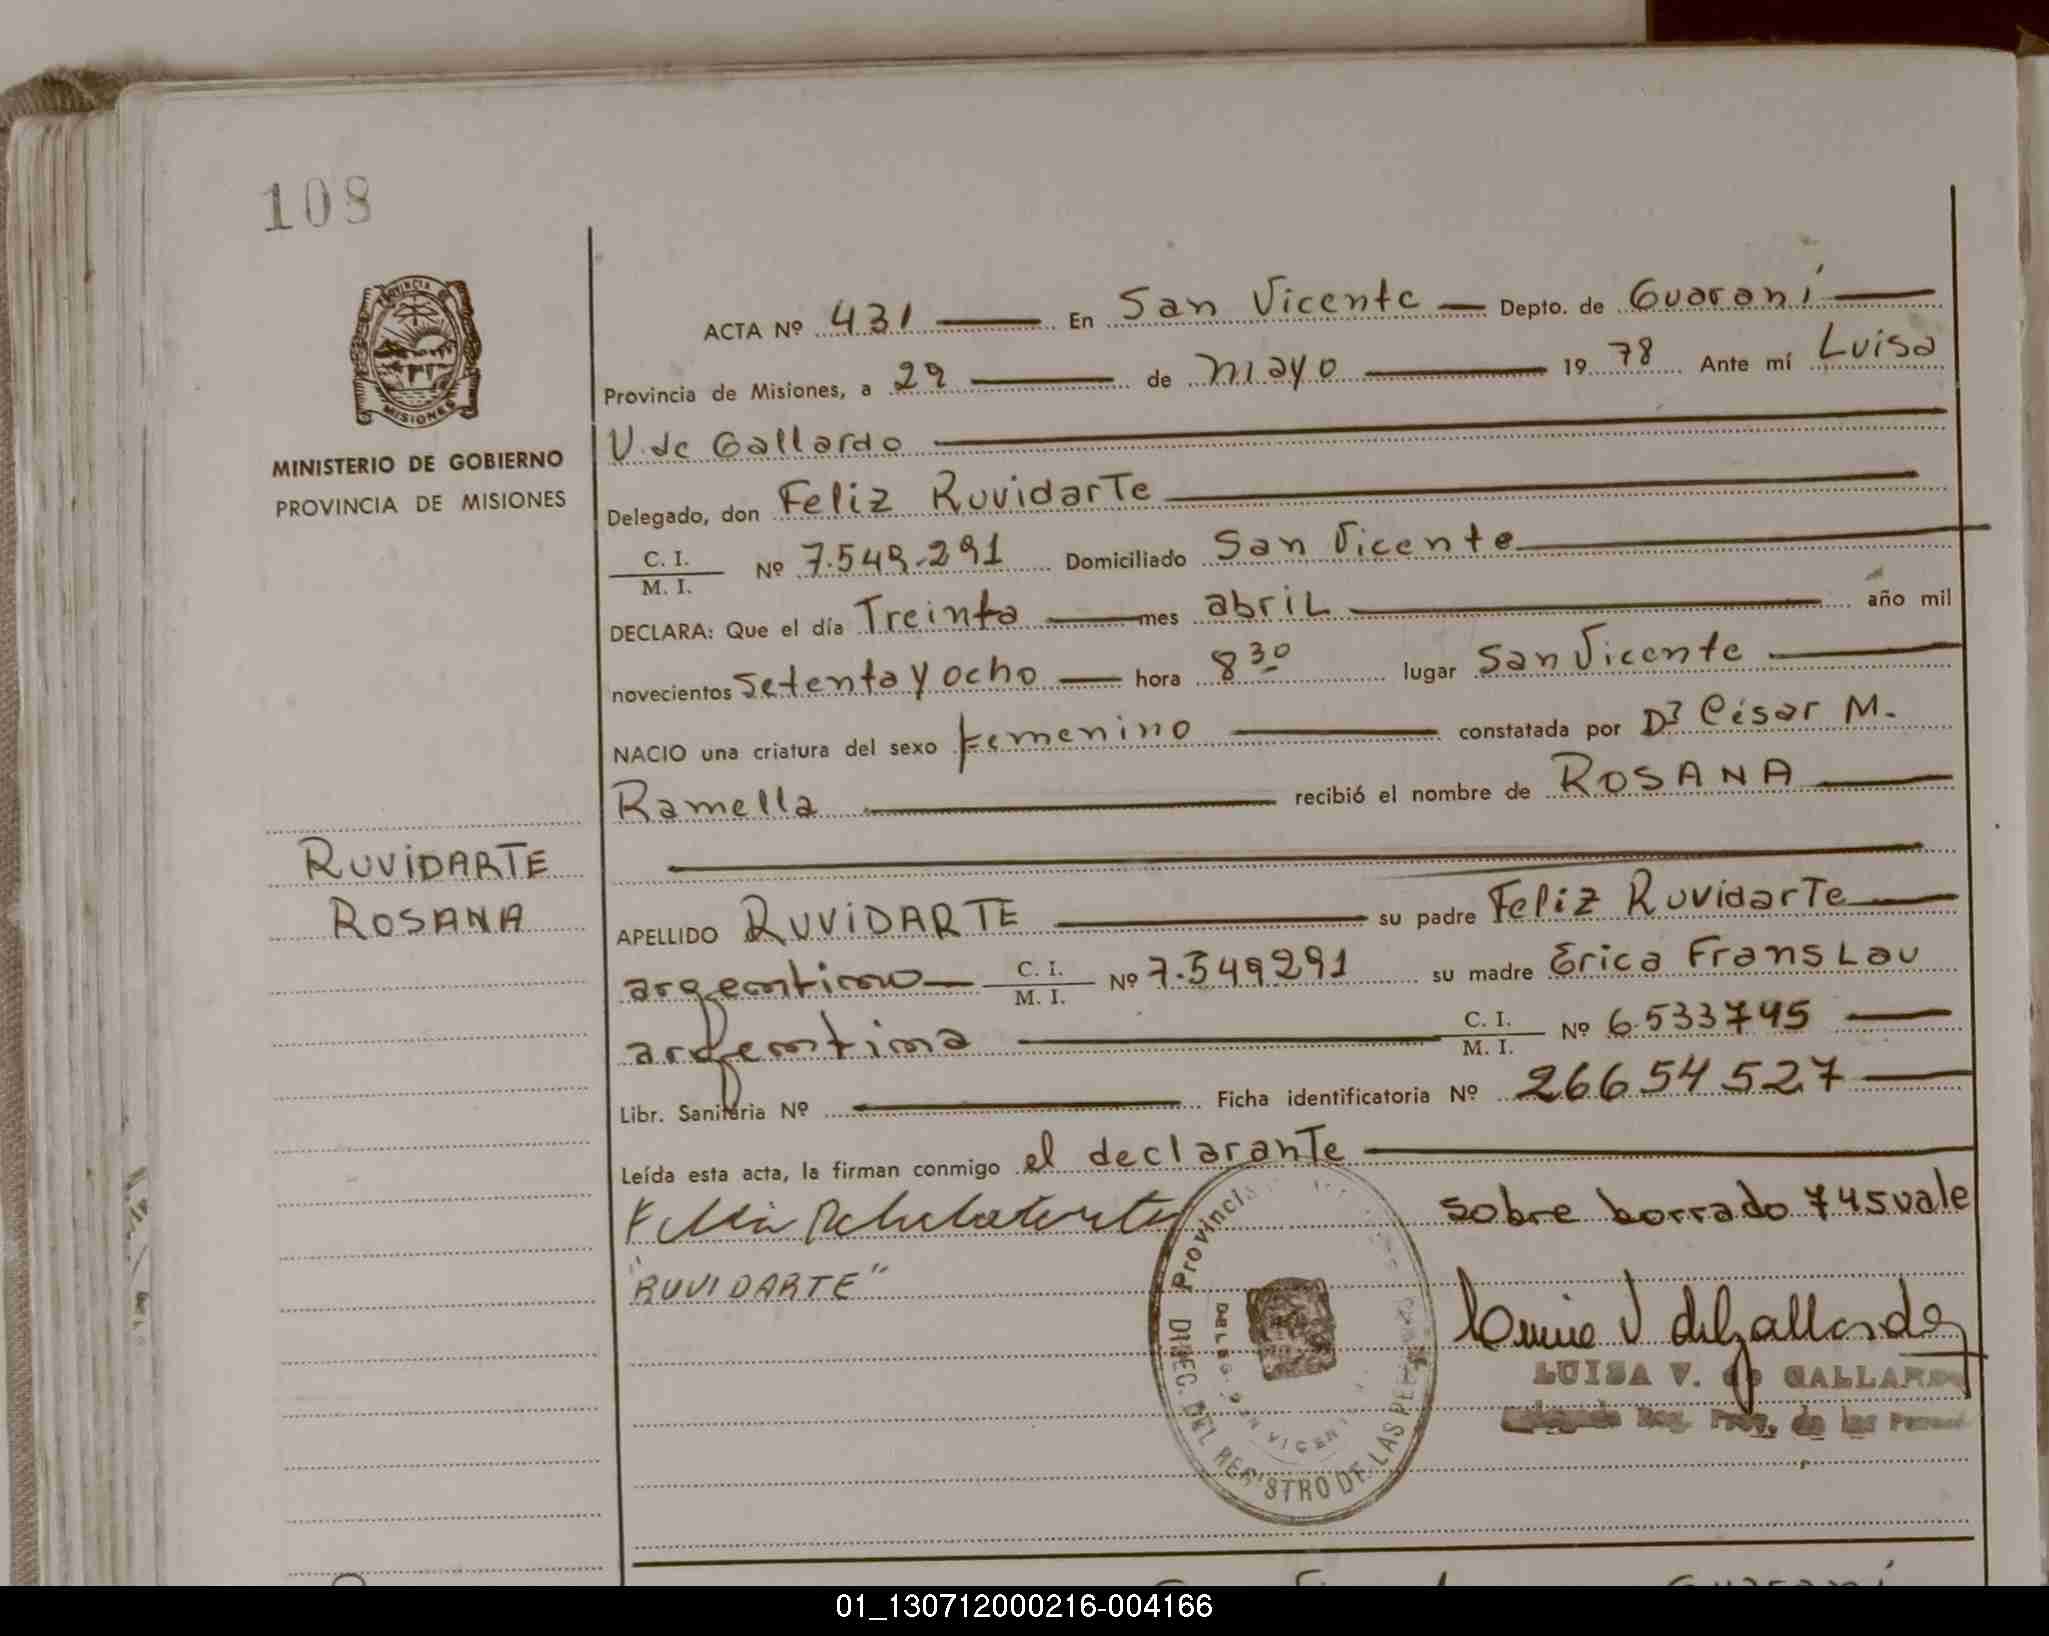 108
PROVINCIA DE
MISIONES
MINISTERIO DE GOBIERNO
PROVINCIA DE MISIONES
RUVIDARTE
ROSANA
ACTA Nº 431 En San Vicente Depto. de Guaraní
Provincia de Misiones, a 29 de mayo 1978 Ante mí Luisa
V. de Gallardo
Delegado, don Feliz Ruvidarte
C. I.
M. I. Nº 7.549.291 Domiciliado San Vicente
DECLARA: Que el día Treinta mes abril año mil
novecientos setenta y ocho hora 8 30 lugar San Vicente
NACIO una criatura del sexo femenino constatada por Dr César M.
Ramella recibió el nombre de ROSANA
APELLIDO RUVIDARTE su padre Feliz Ruvidarte
argentino C. I.
M. I. Nº 7.549291 su madre Erica Frans Lau
argentina C. I.
M. I. Nº 6.533745
Libr. Sanitaria Nº Ficha identificatoria Nº 26654527
Leída esta acta, la firman conmigo el declarante
sobre borrado 745 vale
"RUVIDARTE"
Provincia
DELEG. SAN VICENTE
DIREC. DEL REGISTRO DE LAS
Luisa V de Gallardo
LUISA V. de GALLARDO
Reg. Prov. de las
01_130712000216-004166